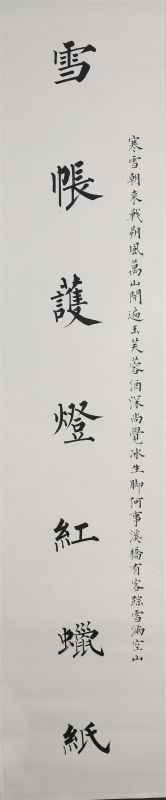 寒雪朝来戰朔風萬山開遍玉芙蓉酒深尚覺冰生脚何事溪橋有客踪雪滿空山
雪帳護燈紅蠟紙